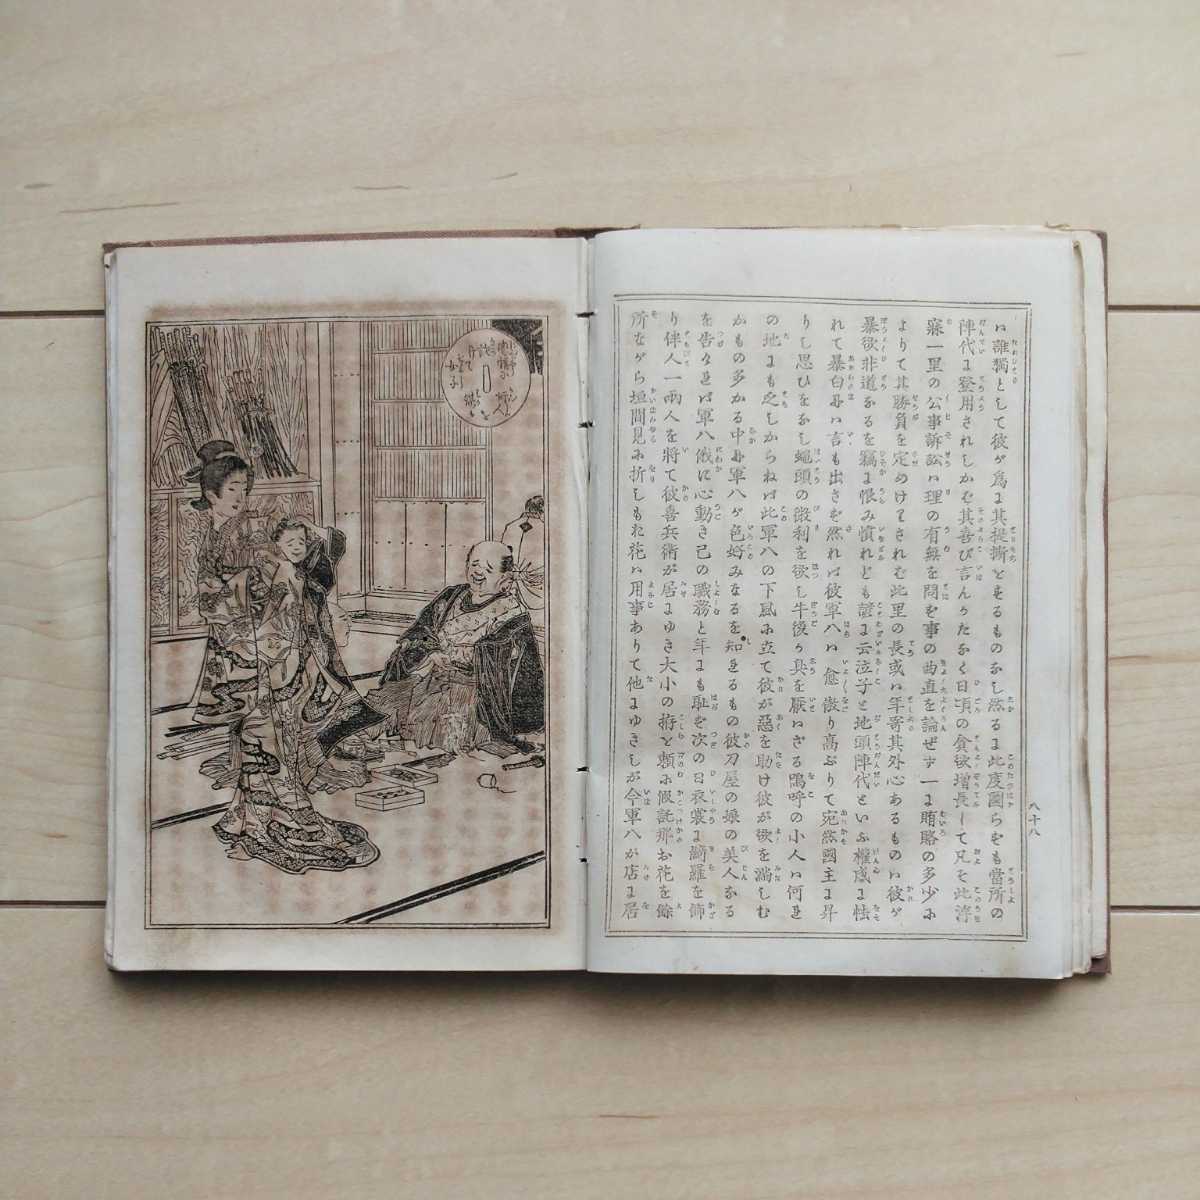 は誰獨として彼が爲に其提撕をするものなし然るに此度圖らずも當所の
陣代に登用されしかば其喜び言んかたなく日頃の貪欲増長して凡そ此澪
寐一里の公事訴訟は理の有無を問ず事の曲直を論ぜず一に賄賂の多少に
よりて其勝負を定めけりされば此里の長或は年寄其外心あるものは彼が
暴欲非道なるを竊に恨み憤れども諺に云泣子と地頭陣代といふ權威に怯
れて暴白には言も出さず然れば彼軍八は愈傲り高ぶりて宛然國主に昇
りし思ひをなし蠅頭の微利を欲し牛後の臭を厭はざる嗚呼の小人は何れ
の地にも乏しからねば此軍八の下風に立て彼が惡を助け彼が欲を滿しむ
るもの多かる中に軍八が色好みなるを知れるもの彼刀屋の娘の美人なる
を告るに軍八俄に心動き己の職務と年にも恥ず次の日衣裳に綺羅を飾
り伴人一兩人を將て彼喜兵衛が居にゆき大小の拵を頼に假託那お花を餘
所ながら垣間見に折しもお花は用事ありて他にゆきしが今軍八が店に居
八十八